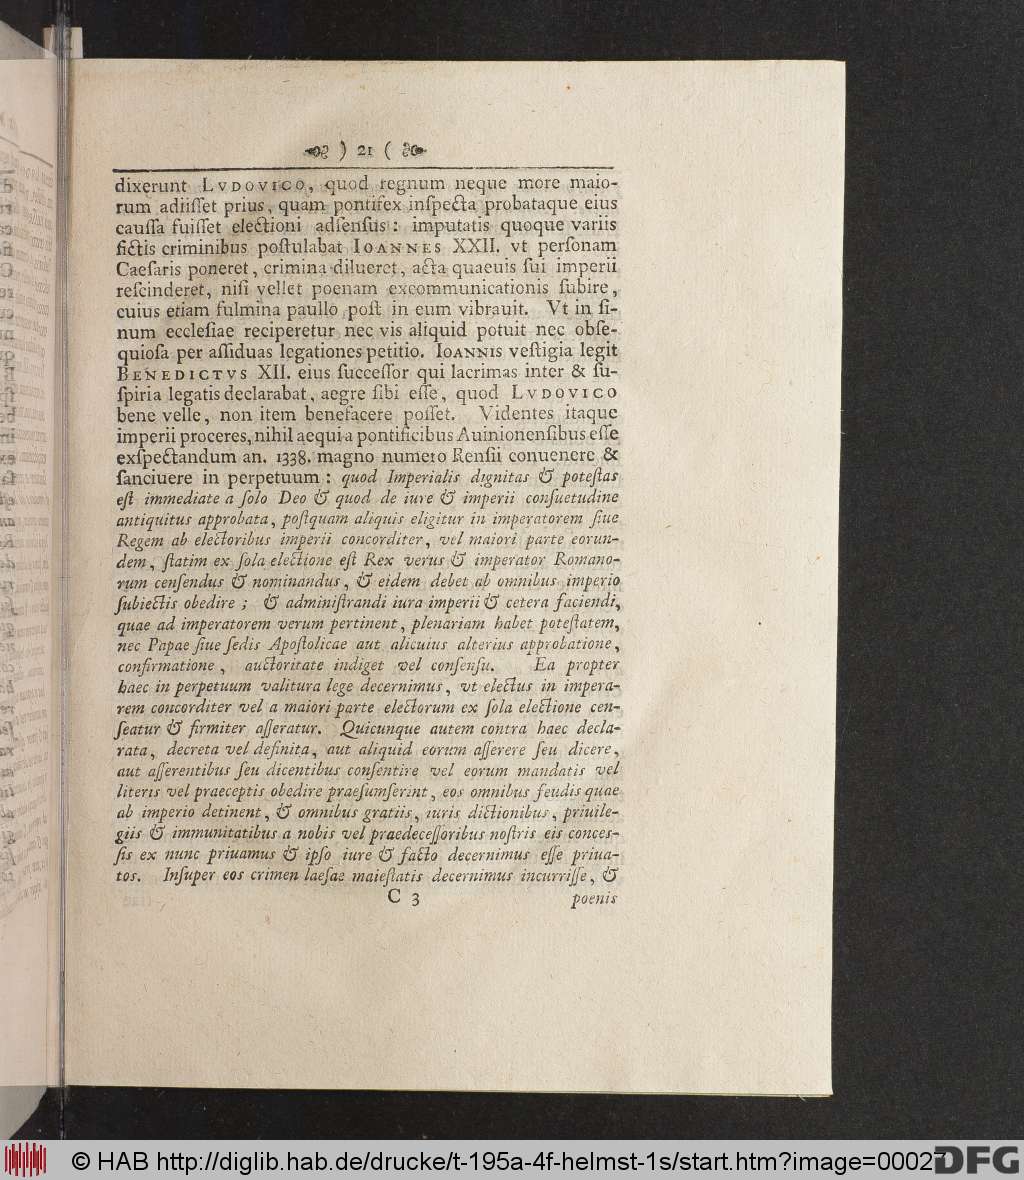 ) 21 (
dixerunt LVDOVICO, quod regnum neque more maio-
rum adiiſſet prius, quam pontifex inſpecta probataque eius
cauſſa fuiſſet electioni adſenſus : imputatis quoque variis
fictis criminibus poſtulabat IOANNES XXII. vt perſonam
Caeſaris poneret, crimina dilueret, acta quaeuis ſui imperii
reſcinderet, niſi vellet poenam excommunicationis ſubire,
cuius etiam fulmina paullo poſt in eum vibrauit. Vt in ſi-
num eccleſiae reciperetur nec vis aliquid potuit nec obſe-
quioſa per aſſiduas legationes petitio. IOANNIS veſtigia legit
BENEDICTVS XII. eius ſucceſſor qui lacrimas inter & ſu-
ſpiria legatis declarabat, aegre ſibi eſſe, quod LVDOVICO
bene velle, non item benefacere poſſet. Videntes itaque
imperii proceres, nihil aequi a pontificibus Auinionenſibus eſſe
exſpectandum an. 1338. magno numero Renſii conuenere &
ſanciuere in perpetuum : quod Imperialis dignitas & poteſtas
eſt immediate a ſolo Deo & quod de iure & imperii conſuetudine
antiquitus approbata, poſtquam aliquis eligitur in imperatorem ſiue
Regem ab electoribus imperii concorditer, vel maiori parte eorun-
dem, ſtatim ex ſola electione eſt Rex verus & imperator Romano-
rum cenſendus & nominandus, & eidem debet ab omnibus imperio
ſubiectis obedire ; & adminiſtrandi iura imperii & cetera faciendi,
quae ad imperatorem verum pertinent, plenariam habet poteſtatem,
nec Papae ſiue ſedis Apoſtolicae aut alicuius alterius approbatione,
confirmatione, auctoritate indiget vel conſenſu. Ea propter
haec in perpetuum valitura lege decernimus, vt electus in impera-
rem concorditer vel a maiori parte electorum ex ſola electione cen-
ſeatur & firmiter aſſeratur. Quicunque autem contra haec decla-
rata, decreta vel definita, aut aliquid eorum aſſerere ſeu dicere,
aut aſſerentibus ſeu dicentibus conſentire vel eorum mandatis vel
literis vel praeceptis obedire praeſumſerint, eos omnibus feudis quae
ab imperio detinent, & omnibus gratiis, iuris dictionibus, priuile-
giis & immunitatibus a nobis vel praedeceſſoribus noſtris eis conceſ-
ſis ex nunc priuamus & ipſo iure & facto decernimus eſſe priua-
tos. Inſuper eos crimen laeſae maieſtatis decernimus incurriſſe, &
C 3 poenis
© HAB http://diglib.hab.de/drucke/t-195a-4f-helmst-1s/start.htm?image=00027
DFG